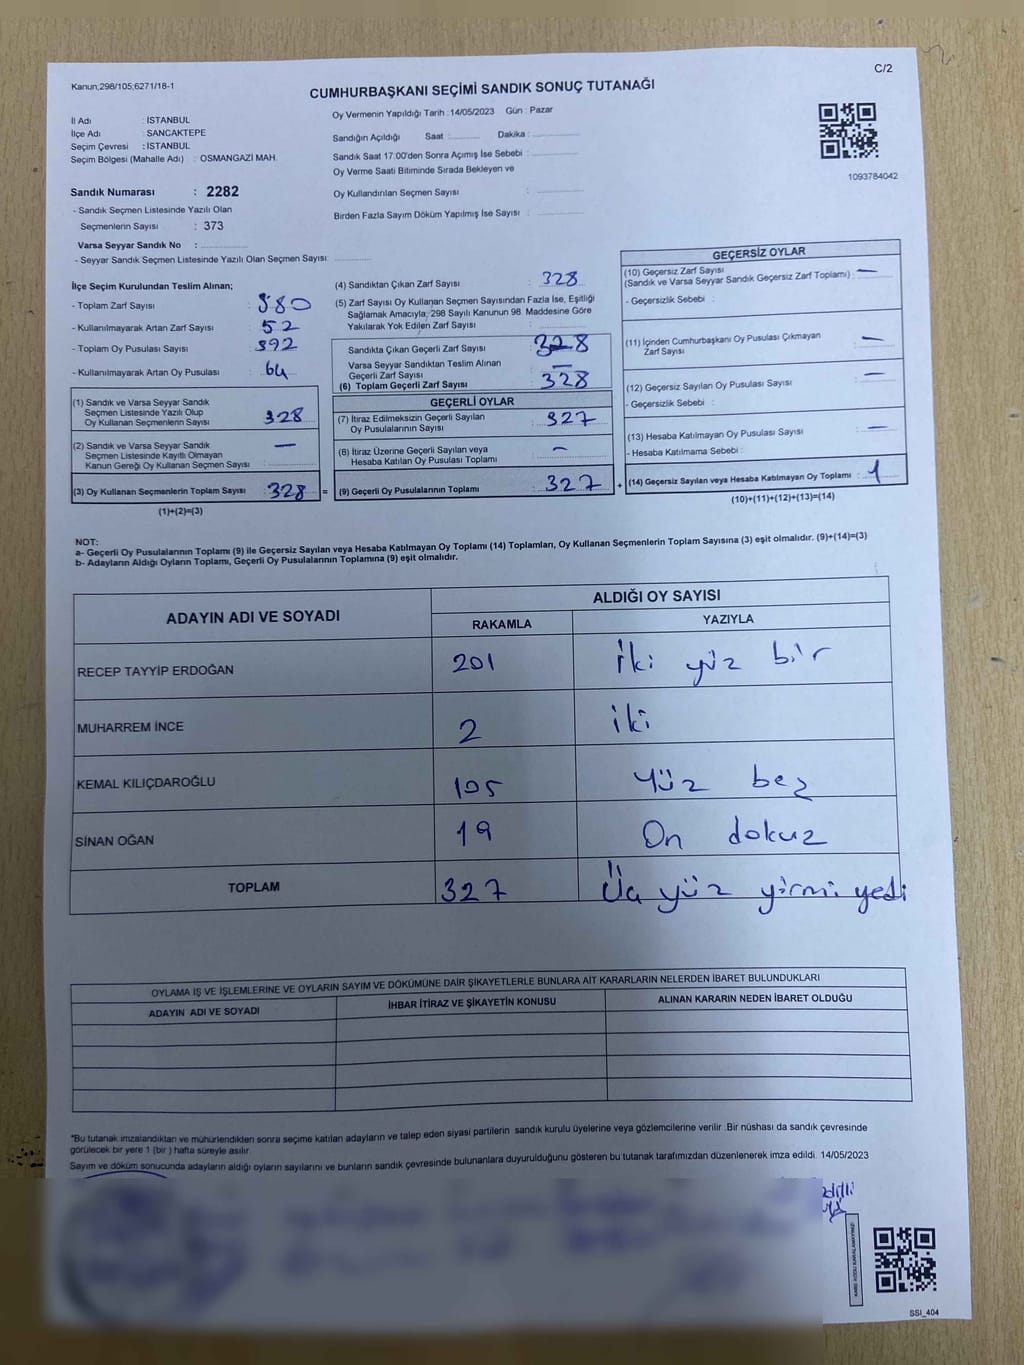 Kanun;298/105;6271/18-1
C/2
CUMHURBAŞKANI SEÇİMİ SANDIK SONUÇ TUTANAĞI
İl Adı : İSTANBUL
İlçe Adı : SANCAKTEPE
Seçim Çevresi : İSTANBUL
Seçim Bölgesi (Mahalle Adı) : OSMANGAZİ MAH.
Sandık Numarası : 2282
- Sandık Seçmen Listesinde Yazılı Olan
Seçmenlerin Sayısı : 373
Varsa Seyyar Sandık No :
- Seyyar Sandık Seçmen Listesinde Yazılı Olan Seçmen Sayısı:
Oy Vermenin Yapıldığı Tarih : 14/05/2023 Gün : Pazar
Sandığın Açıldığı Saat : Dakika :
Sandık Saat 17:00'den Sonra Açımış İse Sebebi :
Oy Verme Saati Bitiminde Sırada Bekleyen ve
Oy Kullandırılan Seçmen Sayısı :
Birden Fazla Sayım Döküm Yapılmış İse Sayısı :
1093784042
İlçe Seçim Kurulundan Teslim Alınan;
- Toplam Zarf Sayısı : 380
- Kullanılmayarak Artan Zarf Sayısı : 52
- Toplam Oy Pusulası Sayısı : 392
- Kullanılmayarak Artan Oy Pusulası : 64
(1) Sandık ve Varsa Seyyar Sandık
Seçmen Listesinde Yazılı Olup
Oy Kullanan Seçmenlerin Sayısı : 328
(2) Sandık ve Varsa Seyyar Sandık
Seçmen Listesinde Kayıtlı Olmayan
Kanun Gereği Oy Kullanan Seçmen Sayısı : —
(3) Oy Kullanan Seçmenlerin Toplam Sayısı : 328 =
(1)+(2)=(3)
(4) Sandıktan Çıkan Zarf Sayısı : 328
(5) Zarf Sayısı Oy Kullanan Seçmen Sayısından Fazla İse, Eşitliği
Sağlamak Amacıyla, 298 Sayılı Kanunun 98. Maddesine Göre
Yakılarak Yok Edilen Zarf Sayısı :
Sandıkta Çıkan Geçerli Zarf Sayısı : 328
Varsa Seyyar Sandıktan Teslim Alınan
Geçerli Zarf Sayısı : —
(6) Toplam Geçerli Zarf Sayısı : 328
GEÇERLİ OYLAR
(7) İtiraz Edilmeksizin Geçerli Sayılan
Oy Pusulalarının Sayısı : 327
(8) İtiraz Üzerine Geçerli Sayılan veya
Hesaba Katılan Oy Pusulası Toplamı : —
(9) Geçerli Oy Pusulalarının Toplamı : 327 +
GEÇERSİZ OYLAR
(10) Geçersiz Zarf Sayısı
(Sandık ve Varsa Seyyar Sandık Geçersiz Zarf Toplamı) : —
- Geçersizlik Sebebi :
(11) İçinden Cumhurbaşkanı Oy Pusulası Çıkmayan
Zarf Sayısı : —
(12) Geçersiz Sayılan Oy Pusulası Sayısı : —
- Geçersizlik Sebebi :
(13) Hesaba Katılmayan Oy Pusulası Sayısı : —
- Hesaba Katılmama Sebebi :
(14) Geçersiz Sayılan veya Hesaba Katılmayan Oy Toplamı : 1
(10)+(11)+(12)+(13)=(14)
NOT:
a- Geçerli Oy Pusulalarının Toplamı (9) ile Geçersiz Sayılan veya Hesaba Katılmayan Oy Toplamı (14) Toplamları, Oy Kullanan Seçmenlerin Toplam Sayısına (3) eşit olmalıdır. (9)+(14)=(3)
b- Adayların Aldığı Oyların Toplamı, Geçerli Oy Pusulalarının Toplamına (9) eşit olmalıdır.
ADAYIN ADI VE SOYADI
ALDIĞI OY SAYISI
RAKAMLA YAZIYLA
RECEP TAYYİP ERDOĞAN 201 iki yüz bir
MUHARREM İNCE 2 iki
KEMAL KILIÇDAROĞLU 105 yüz beş
SİNAN OĞAN 19 On dokuz
TOPLAM 327 Üç yüz yirmi yedi
OYLAMA İŞ VE İŞLEMLERİNE VE OYLARIN SAYIM VE DÖKÜMÜNE DAİR ŞİKAYETLERLE BUNLARA AİT KARARLARIN NELERDEN İBARET BULUNDUKLARI
ADAYIN ADI VE SOYADI İHBAR İTİRAZ VE ŞİKAYETİN KONUSU ALINAN KARARIN NEDEN İBARET OLDUĞU
*Bu tutanak imzalandıktan ve mühürlendikten sonra seçime katılan adayların ve talep eden siyasi partilerin sandık kurulu üyelerine veya gözlemcilerine verilir. Bir nüshası da sandık çevresinde
görülecek bir yere 1 (bir) hafta süreyle asılır.
Sayım ve döküm sonucunda adayların aldığı oyların sayılarını ve bunların sandık çevresinde bulunanlara duyurulduğunu gösteren bu tutanak tarafımızdan düzenlenerek imza edildi. 14/05/2023
KARE KODU KARALAMAYINIZ!
SSI_404